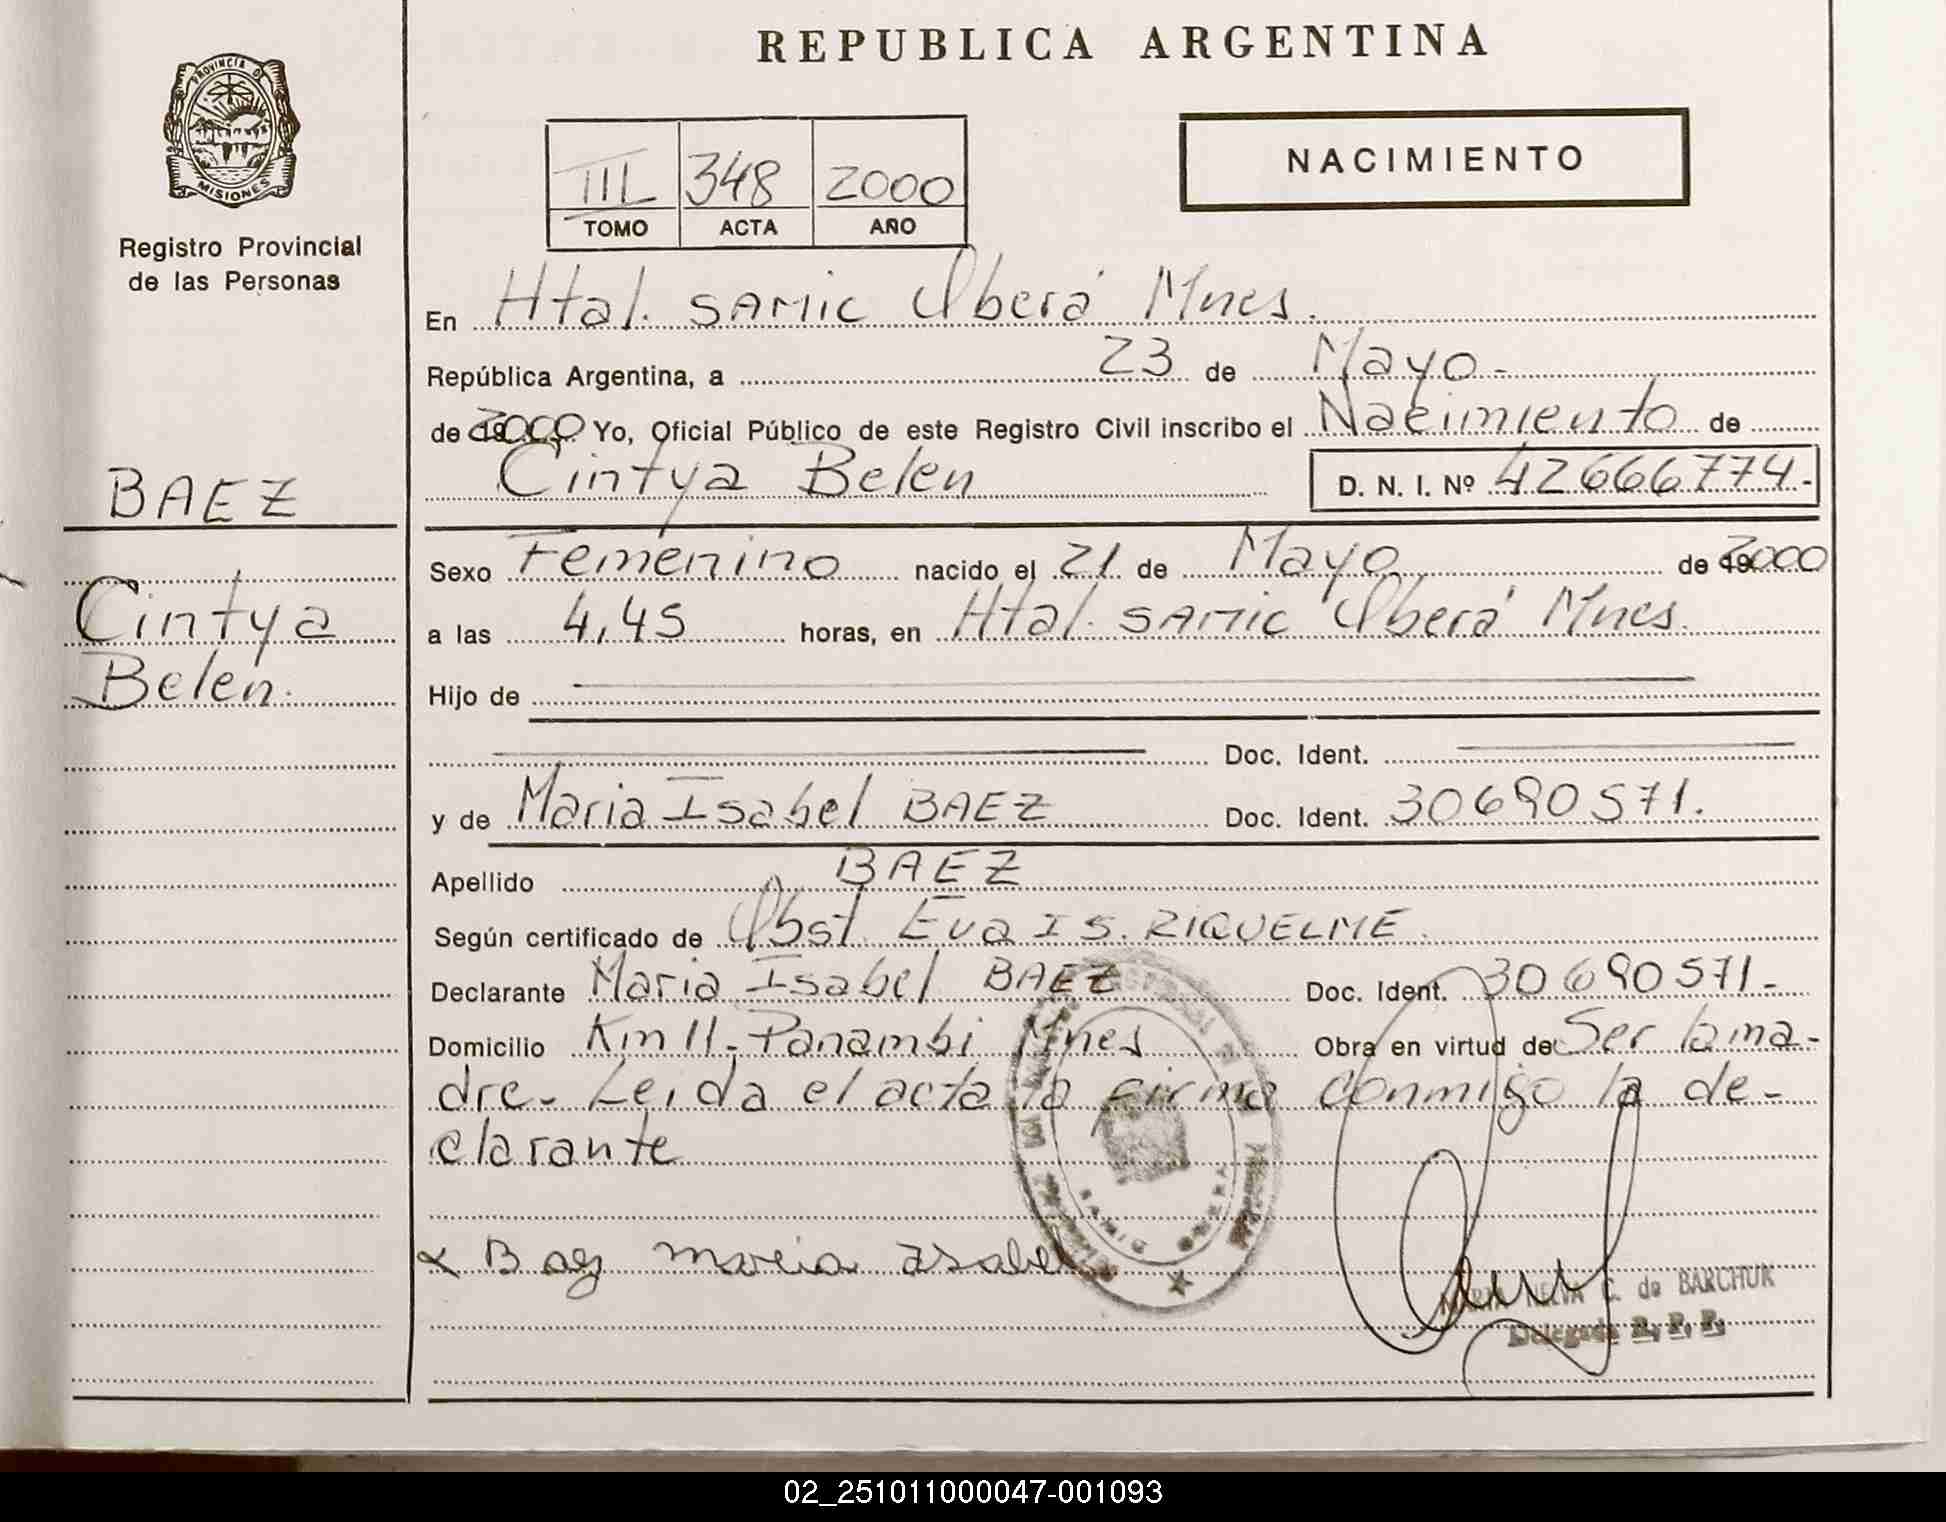 REPUBLICA ARGENTINA
PROVINCIA DE
MISIONES
Registro Provincial
de las Personas
NACIMIENTO
III 348 2000
TOMO ACTA AÑO
En Htal. SAMIC Oberá Mnes.
República Argentina, a 23 de Mayo -
de 2000 Yo, Oficial Público de este Registro Civil inscribo el Nacimiento de
Cintya Belen D. N. I. Nº 42666774.-
BAEZ
Cintya
Belen.
Sexo Femenino nacido el 21 de Mayo de 2000
a las 4,45 horas, en Htal. SAMIC Oberá Mnes.
Hijo de
Doc. Ident.
y de Maria Isabel BAEZ Doc. Ident. 30690571.
Apellido BAEZ
Según certificado de Obst. Eva IS. RIQUELME.
Declarante Maria Isabel BAEZ Doc. Ident. 30690571.-
Domicilio Km 11. Panambi Mnes Obra en virtud de Ser la ma-
dre. Leida el acta la firma conmigo la de-
clarante
Baez maria Isabel
MARIA NELVA C. de BARCHUK
Delegada R. P. P.
02_251011000047-001093